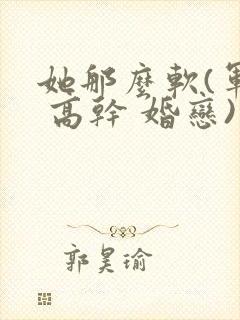 她那麼軟(軍
高幹 婚戀)
郭昊瑜